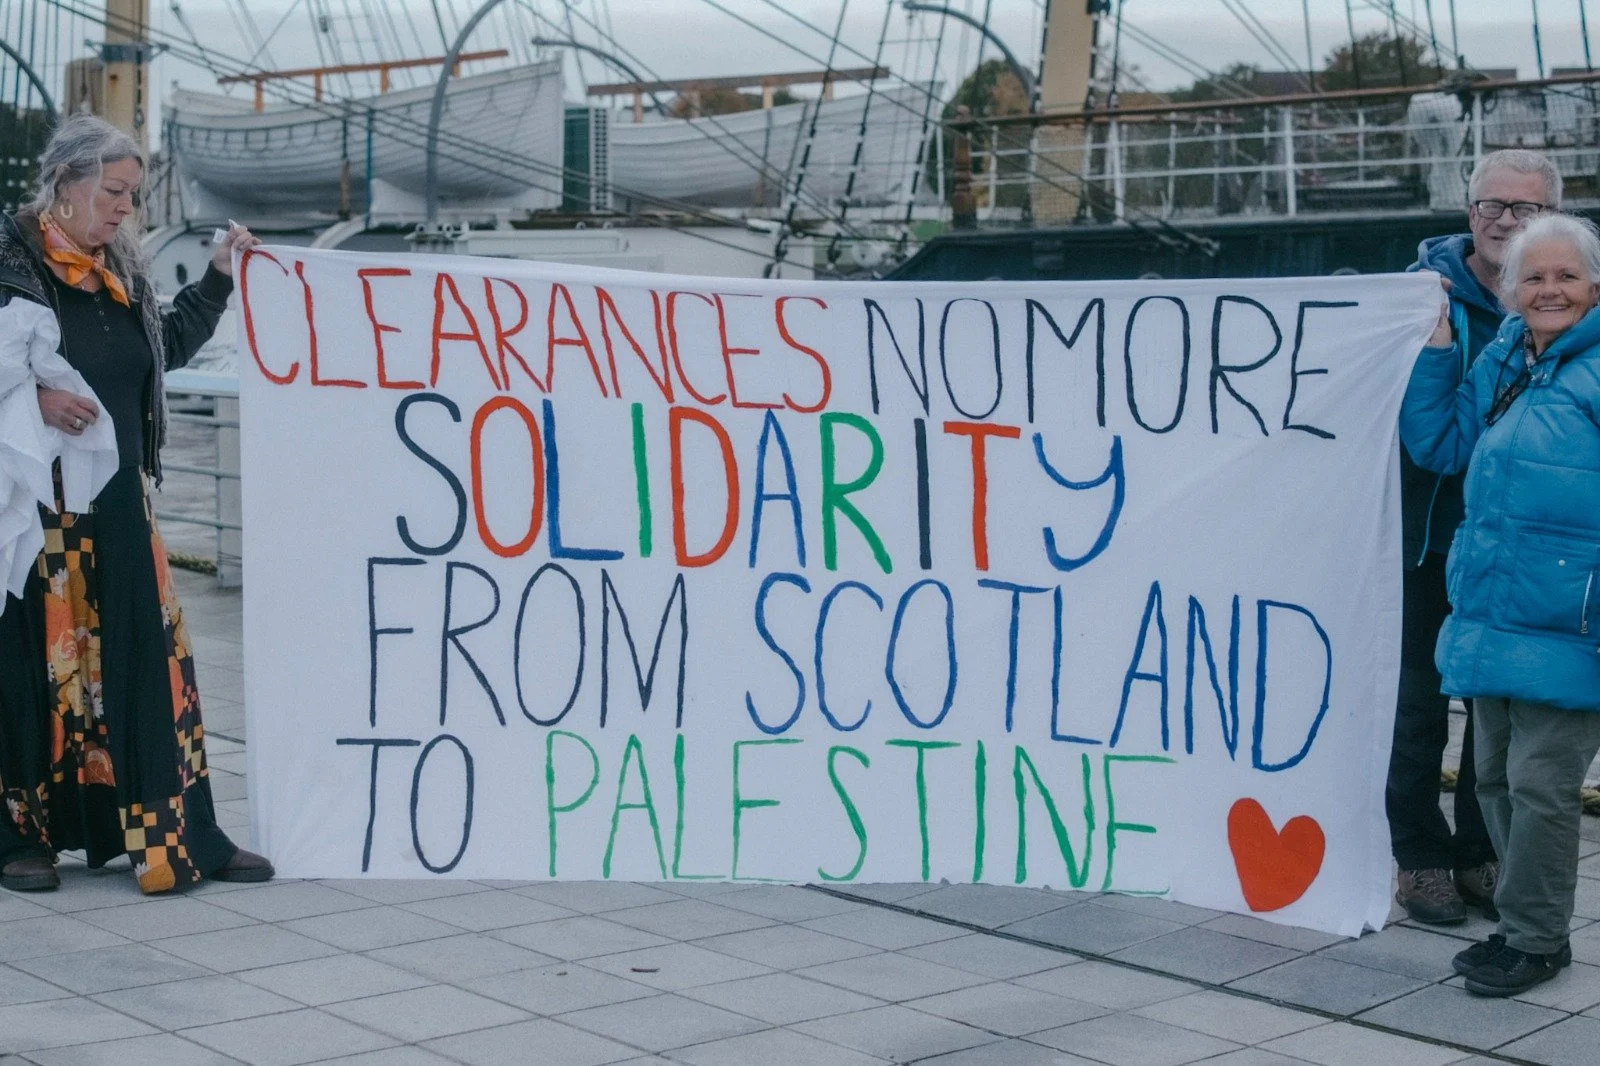 CLEARANCES NO MORE
SOLIDARITY
FROM SCOTLAND
TO PALESTINE